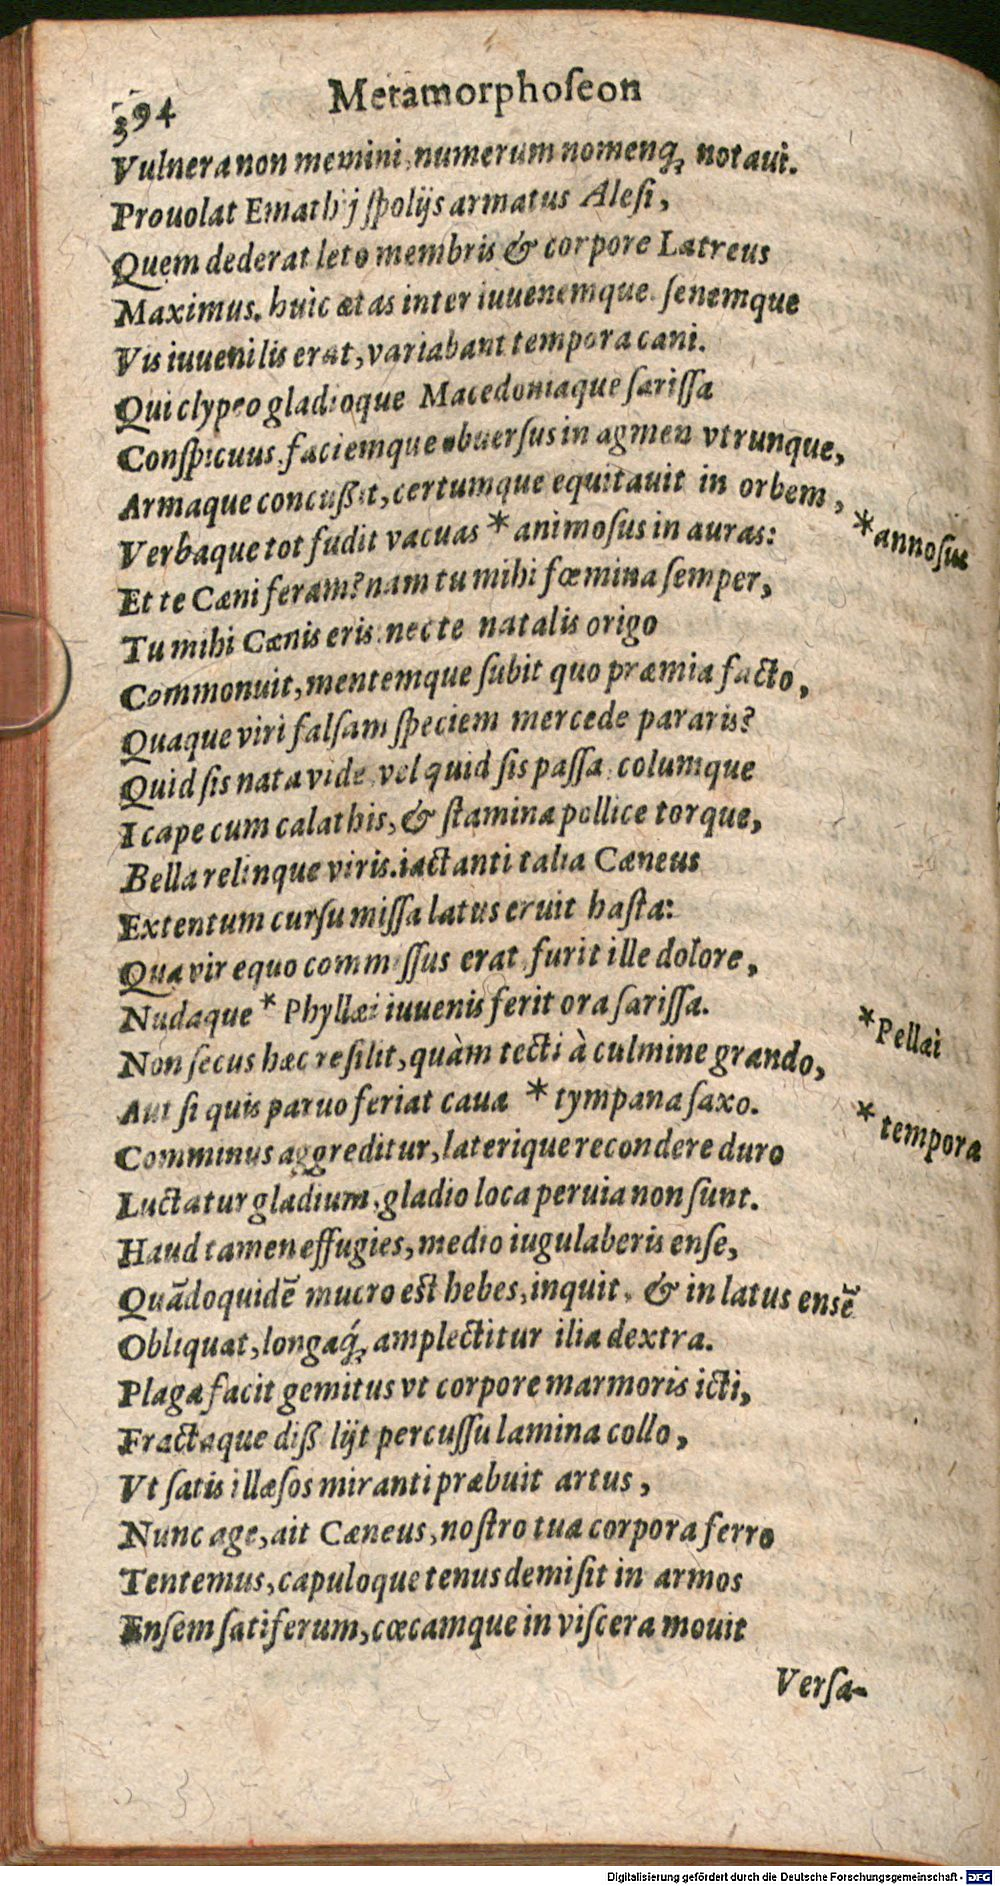 394 Metamorphoſeon
Vulnera non memini, numerum nomenq́; notaui.
Prouolat Emathij ſpolijs armatus Aleſi,
Quem dederat leto membris & corpore Latreus
Maximus. huic ætas inter iuuenemque ſenemque
Vis iuuenilis erat, variabant tempora cani.
Qui clypeo gladioque Macedoniaque ſariſſa
Conſpicuus faciemque obuerſus in agmen vtrunque,
Armaque concußit, certumque equitauit in orbem,
Verbaque tot fudit vacuas * animoſus in auras: *annoſus
Et te Cæni feram? nam tu mihi fœmina ſemper,
Tu mihi Cænis eris. nec te natalis origo
Commonuit, mentemque ſubit quo præmia facto,
Quaque viri falſam ſpeciem mercede pararis?
Quid ſis nata vide, vel quid ſis paſſa, columque
I cape cum calathis, & ſtamina pollice torque,
Bella relinque viris. iactanti talia Cæneus
Extentum curſu miſſa latus eruit haſta:
Qua vir equo commiſſus erat. furit ille dolore,
Nudaque * Phyllæi iuuenis ferit ora ſariſſa. *Pellæi
Non ſecus hæc reſilit, quàm tecti à culmine grando,
Aut ſi quis paruo feriat caua * tympana ſaxo. * tempora
Comminus aggreditur, laterique recondere duro
Luctatur gladium, gladio loca peruia non ſunt.
Haud tamen effugies, medio iugulaberis enſe,
Quādoquidē mucro est hebes, inquit, & in latus ensē
Obliquat, longaq́; amplectitur ilia dextra.
Plaga facit gemitus vt corpore marmoris icti,
Fractaque dißilijt percuſſu lamina collo,
Vt ſatis illæſos miranti præbuit artus,
Nunc age, ait Cæneus, noſtro tua corpora ferro
Tentemus, capuloque tenus demiſit in armos
Enſem fatiferum, cœcamque in viſcera mouit
Verſa-
Digitalisierung gefördert durch die Deutsche Forschungsgemeinschaft - DFG